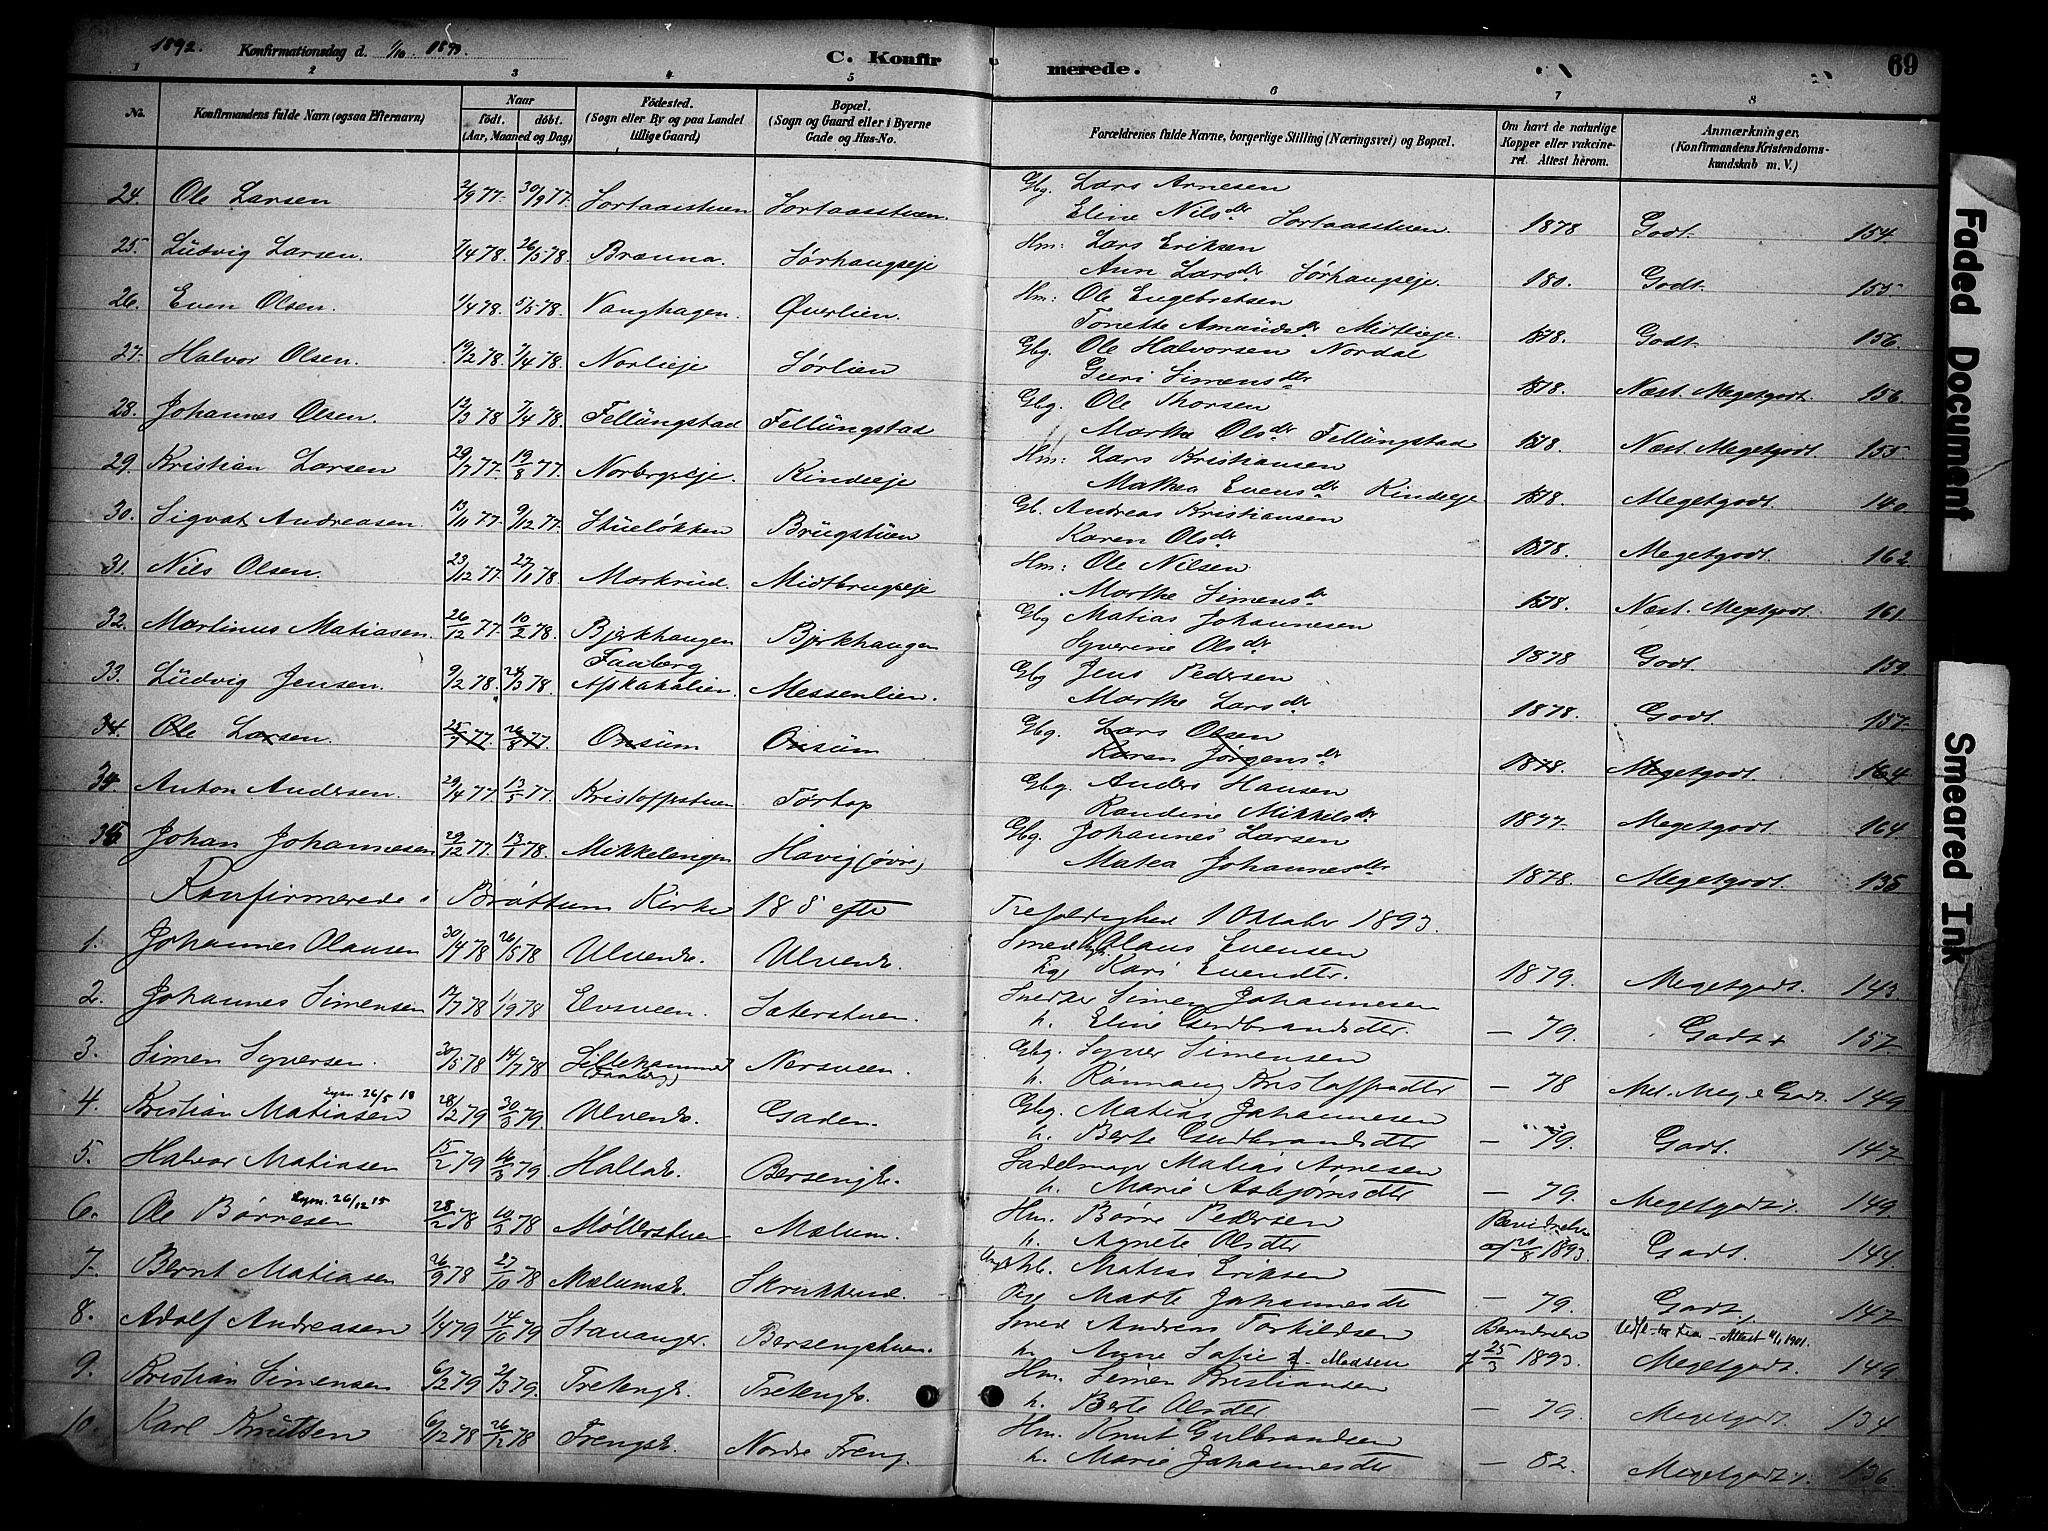 1892. Konfirmationsdag d. 1/10 1893. C. Konfirmerede. 69
1 2 3 4 5 6 7 8
No. Konfirmandens fulde Navn (ogsaa Efternavn) Naar födt. döbt. (Aar, Maaned og Dag) Födested. (Sogn eller By og paa Landet tillige Gaard) Bopæl. (Sogn og Gaard eller i Byerne Gade og Hus-No. Forældrenes fulde Navne, borgerlige Stilling (Næringsvei) og Bopæl. Om havt de naturlige Kopper eller vakcineret. Attest herom. Anmærkninger, (Konfirmandens Kristendomskundskab m. V.)
24. Ole Larsen 2/9 77. 30/9 77. Sortaasstuen Sortaasstuen Gbg. Lars Arnesen
Eline Nilsdr Sortaasstuen 1878 Godt. 154.
25. Ludvig Larsen. 1/4 78. 26/5 78. Brænna. Sørhaugseje Hm: Lars Eriksen
Ann Larsdr Sørhaugseje. 180. Godt. 155.
26. Even Olsen. 1/4 78. 5/5 78. Vanghagen. Øverlien. Hm: Ole Engebretsen
Tonette Amundsdr Mirlieje. 1878. Godt. 156.
27. Halvor Olsen. 19/2 78. 7/4 78. Norlieje Sørlien Gbg. Ole Halvorsen Nordal
Guri Simensdr 1878. Næst. Megetgodt. 156.
28. Johannes Olsen. 12/3 78 7/4 78. Fellungstad Fellungstad Gbg. Ole Thorsen
Marthe Olsdr Fellungstad 1878. Næst. Megetgodt. 155.
29. Kristian Larsen 29/7 77. 19/8 77. Norbergseje. Kindseje Hm: Lars Kristiansen
Mathea Evensdr Kindseje 1878. Megetgodt. 140.
30. Sigvat Andreasen. 13/11 77. 9/12 77. Stueløkken Brugstuen Gb. Andreas Kristiansen
Karen Olsdr 1878. Megetgodt. 162.
31. Nils Olsen. 23/12 77. 27/1 78. Morkrud. Midtbrugseje Hm: Ole Nilsen
Marthe Simensdr 1878. Næst. Megetgodt. 161.
32. Martinus Matiasen. 26/12 77. 10/2 78. Bjerkhaugen Bjerkhaugen Gbg Matias Johannesen
Syverine Olsdr 1878 Godt. 159.
33. Ludvig Jensen. 9/2 78. 24/3 78. Faaberg Messenlien. Gbg Jens Pedersen
Marthe Larsdr 1878. Godt. 157.
34. Ole Larsen. 25/7 77. 26/8 77. Onsum Onsum Gbg. Lars Olsen
Karen Jørgensdr 1878. Megetgodt. 164
34 Anton Andersen. 29/4 77. 13/5 77. Kristoffestuen Tørtop Gbg. Anders Hansen
Randine Mikkelsdr 1877. Megetgodt. 164.
35 Johan Johannesen 29/12 77. 13/1 78. Mikkelengen Havig (øvre) Gbg. Johannes Larsen
Matea Johannesdr 1878. Megetgodt. 135
Konfirmerede i Brøttum Kirke 18 S efter Trefoldighed 1 Oktober 1893.
1. Johannes Olausen 30/4 78 26/5 78 Ulvenh. Ulvenh. Smed Olaus Evensen
Kari Evendtr. 1879. Megetgodt. 143.
2. Johannes Simensen 17/7 78 1/9 78 Elvsveen. Sæterstuen. Snedker Simen Johannesen
h. Eline Gudbrandsdtr. — 79. Godt + 157.
3. Simen Syversen. 30/5 78 14/7 78 Lillehammer (Faaberg) Nersveen. Gbg. Syver Simensen
h. Rønnaug Kristoffersdtr — 78 Mel. Meg. e Godt. 149.
4. Kristian Matiasen Lysn. 26/5 18 28/12 79 30/3 79 Ulvenh. Gaden. Gbg. Matias Johannesen
h. Berte Gudbrandsdtr — 79. Godt. 147.
5. Halvor Matiasen 15/2 79 16/3 79 Hallah. Bersengh. Sadelmager Matias Arnesen
h. Marie Asbjørnsdtr — 79. Megetgodt. 149.
6. Ole Børresen Lysn. 26/12 15 28/2 78 10/3 78 Møllerstuen Mælum. Hm. Børre Pedersen
h. Agnete Olsdtr 1893. Godt. 144.
7. Bernt Matiasen 26/9 78 27/10 78 Mælumsh. Skrukkrud. Matias Eriksen
Pge Marte Johannesdtr — 79. Godt. 147.
8. Adolf Andreasen 1/4 79 14/10 79 Stavanger. Bersengstuen. Smed Andreas Torkildsen Attest 1901.
h. Anne Sofie f. Madsen 25/3 1893. Megetgodt. 149.
9. Kristian Simensen 6/2 79 2/3 79. Tretengh. Tretengh. Hm. Simen Kristiansen
h. Berte Olsdtr — 79. Megetgodt. 134
10. Karl Knutsen 6/12 78 26/12 78 Frengsh. Nordre Freng. Hm. Knut Gulbrandsen
h. Marie Johannesdtr — 82. Megetgodt. 136.
Faded Document
Smeared Ink